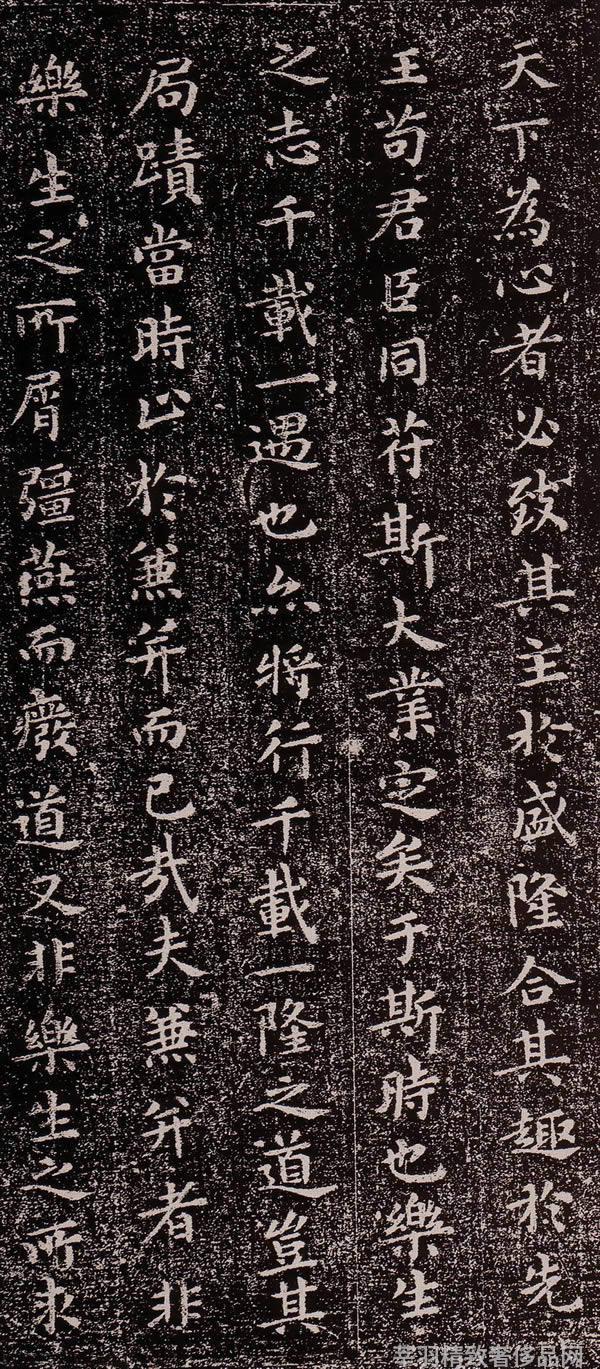 天下為心者必致其主於盛隆合其趣於先
王苟君臣同符斯大業定矣于斯時也樂生
之志千載一遇也亦將行千載一隆之道豈其
局蹟當時止於兼并而已哉夫兼并者非
樂生之所屑彊燕而癈道又非樂生之所求
芊羽精致奢侈品网